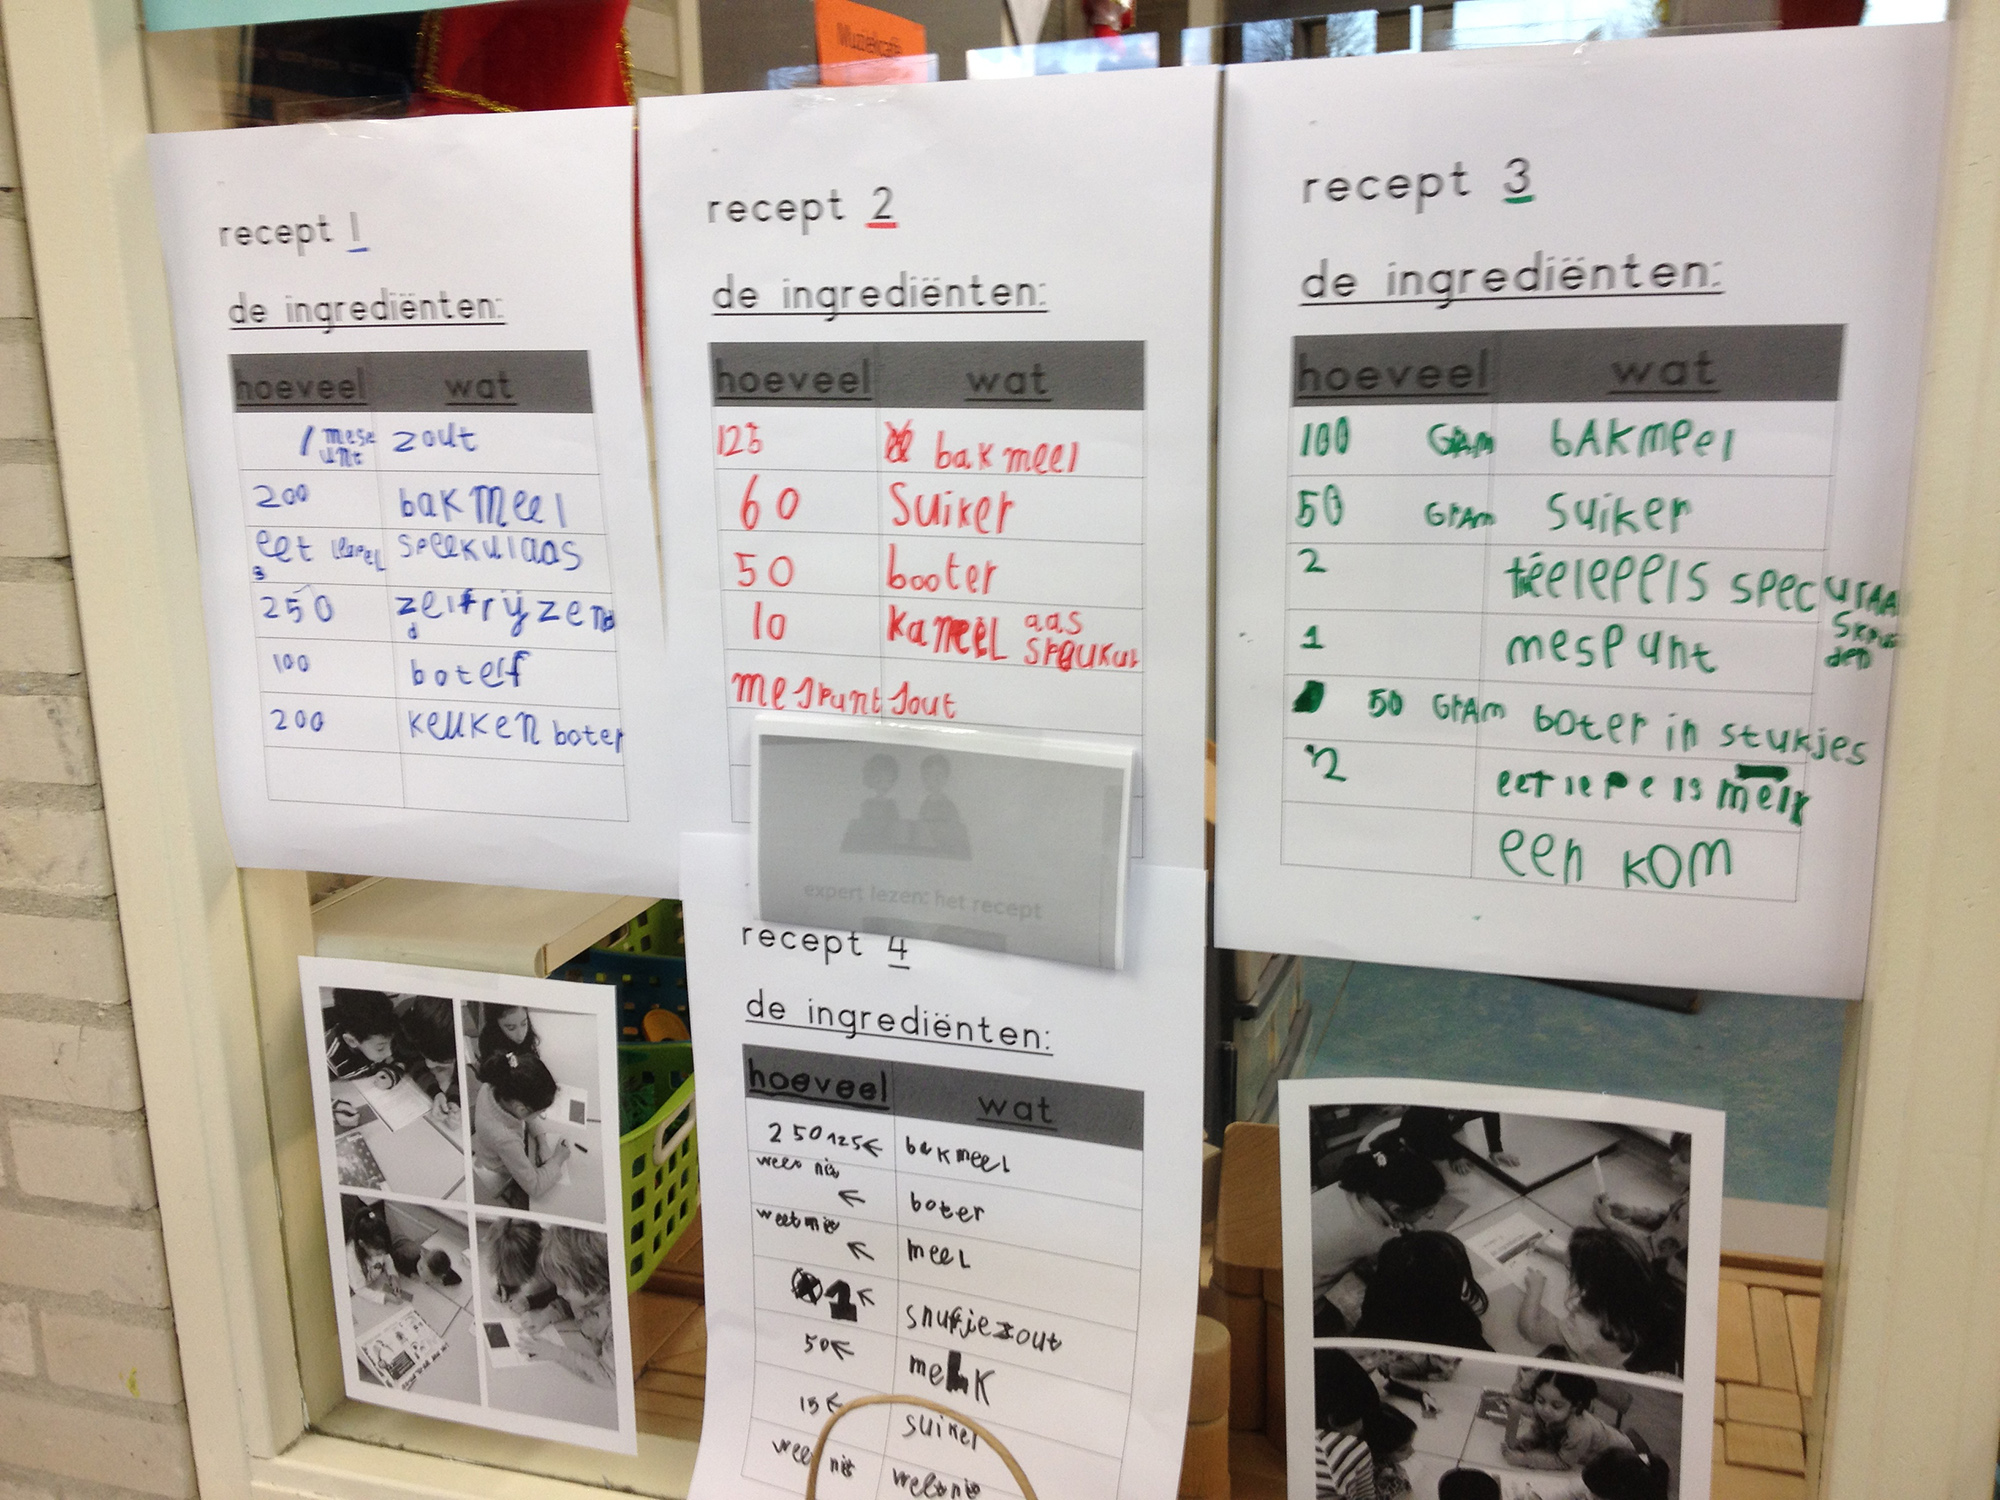 Muziekcafé
recept 1
de ingrediënten:
hoeveel wat
1 mese unt zout
200 bakmeel
eet lepel speekulaas
3
250 zelfrijzend
100 boter
200 keuken boter
recept 2
de ingrediënten:
hoeveel wat
125 bakmeel
60 Suiker
50 booter
10 kaneel aas
mespunt zout
expert lezen: het recept
recept 3
de ingrediënten:
hoeveel wat
100 GrAm bAkmeel
50 GrAm suiker
2 teelepels specu
1 mespunt
50 GrAm boter in stukjes
2 eetlepels melk
een kom
recept 4
de ingrediënten:
hoeveel wat
250 125 ← bakmeel
← boter
weet nie ← meel
1 ← snufje zout
50 ← melk
15 ← suiker